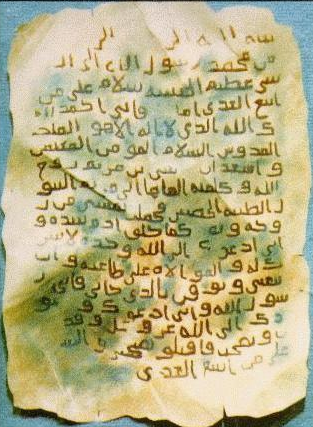 سم الله الر الر
من محمد رسول الله الى ال
سى عظيم الحبشه سلام على من
اتبع الهدى اما فانى احمد
ك الله الذى لا اله الا هو الملك
القدوس السلام المومن المهيمن
و اشهد ان بن مريم روح
الله و كلمته القاها الى مريم البتو
ل الطيبه الحصينه فحملت بعيسى من ر
وحه و كما خلق ادم بيده و
انى ادعوك الى الله وحده لا شر
يك له و الموالاه على طاعته و ان
تتبعنى و توقن بالذى جانى فانى ر
سول الله و انى ادعوك و
دك الى الله عز و جل و قد
و نصحت فاقبلو نصيحتى و السلم
على من اتبع الهدى